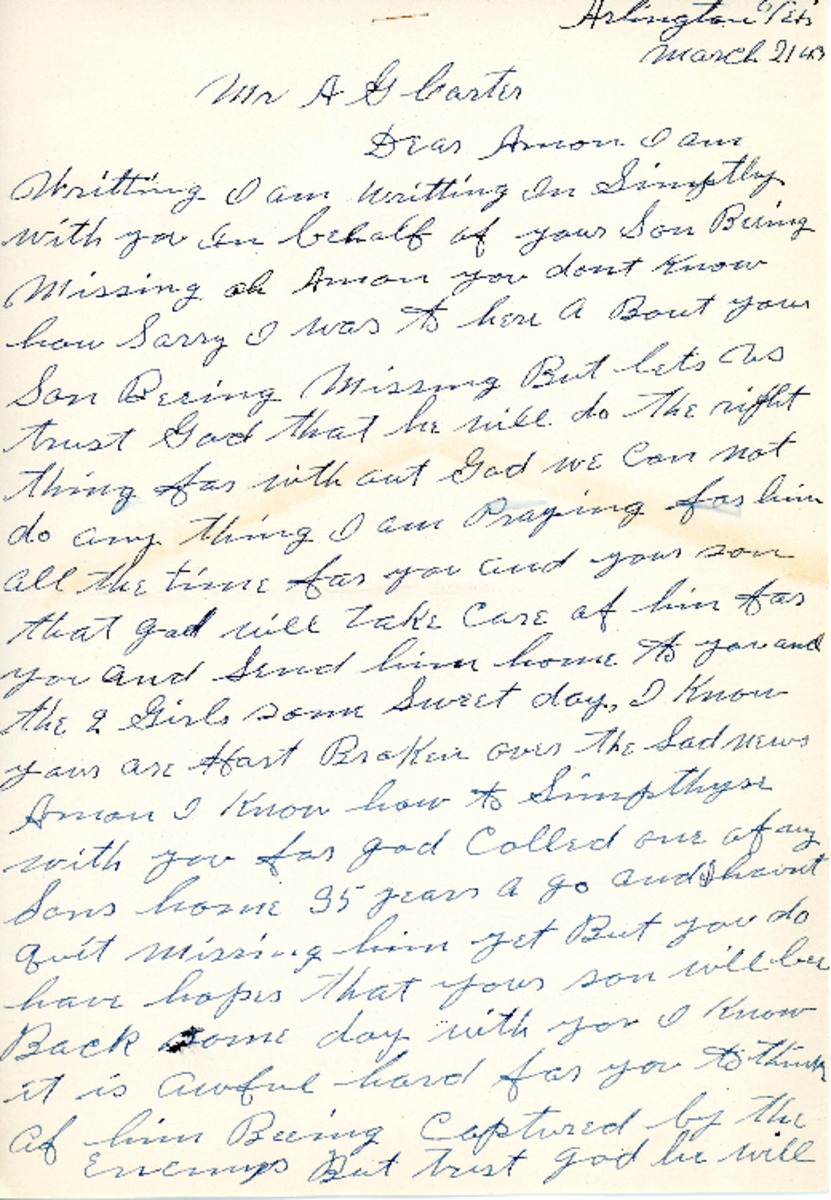 Arlington Tex
March 21 43
Mr A G Carter
Dear Amon I am
Writting I am writting In Simptly
with you In behalf of your Son Being
Missing oh Amon you dont Know
how Sorry I was to here A Bout your
Son Beeing Missing But lets us
trust God that he will do the right
thing for with out God we Can not
do any thing I am Praying for him
all the time for you and your son
that god will take Care of him for
you and Send him home to you and
the 2 Girls some Sweet day, I Know
yours are Hart Broken over the Sad news
Amon I Know how to Simpthyse
with you for god Colled one of my
Sons home 35 years a go and I havnt
quit missing him yet But you do
have hopes that your son will bee
Back some day with you I Know
it is awful hard for you to think
of him Being Captured by the
Enemys But trust god he will